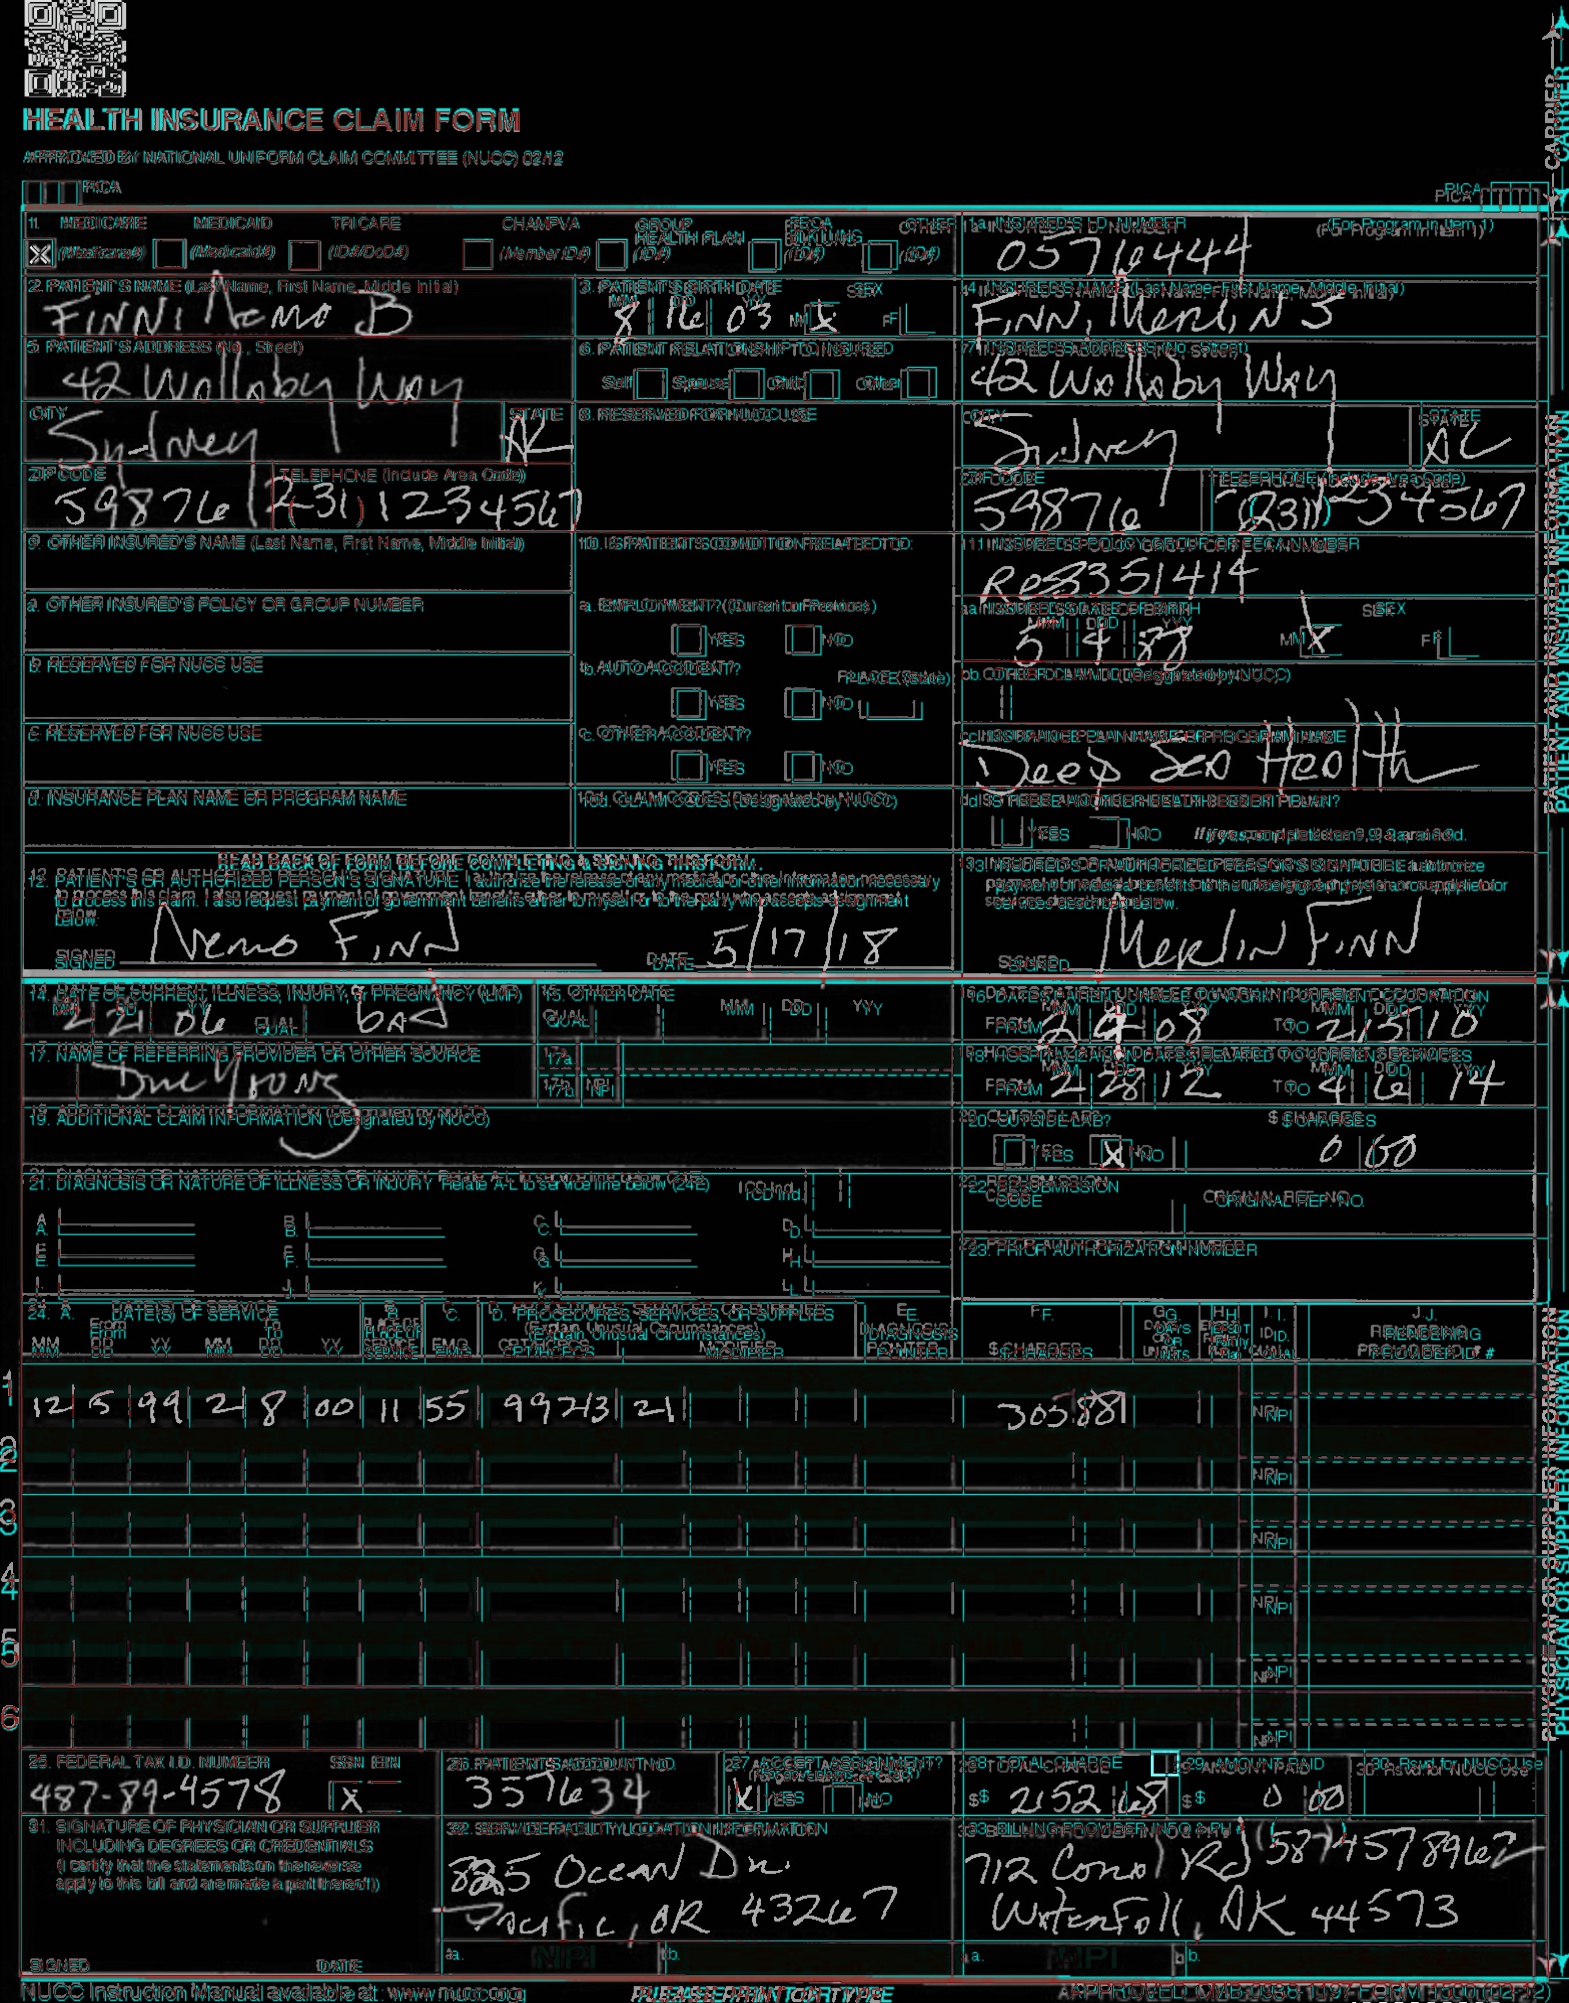 HEALTH INSURANCE CLAIM FORM
APPROVED BY NATIONAL UNIFORM CLAIM COMMITTEE (NUCC) 02/12
PICA
PICA
CARRIER
1. MEDICARE MEDICAID TRICARE CHAMPVA GROUP HEALTH PLAN FECA BLK LUNG OTHER
(Medicare#) (Medicaid#) (ID#/DoD#) (Member ID#) (ID#) (ID#) (ID#)
1a. INSURED'S I.D. NUMBER (For Program in Item 1)
05716444
2. PATIENT'S NAME (Last Name, First Name, Middle Initial)
FINN, Nemo B
3. PATIENT'S BIRTH DATE SEX
MM DD YY
8 16 03 M X F
4. INSURED'S NAME (Last Name, First Name, Middle Initial)
FINN, Merlin S
5. PATIENT'S ADDRESS (No., Street)
42 Wallaby Way
6. PATIENT RELATIONSHIP TO INSURED
Self Spouse Child Other
7. INSURED'S ADDRESS (No., Street)
42 Wallaby Way
CITY STATE
Sydney
8. RESERVED FOR NUCC USE
CITY STATE
Sydney
ZIP CODE TELEPHONE (Include Area Code)
59876 (231) 1234567
ZIP CODE TELEPHONE (Include Area Code)
59876 (231) 1234567
9. OTHER INSURED'S NAME (Last Name, First Name, Middle Initial)
10. IS PATIENT'S CONDITION RELATED TO:
11. INSURED'S POLICY GROUP OR FECA NUMBER
a. OTHER INSURED'S POLICY OR GROUP NUMBER
a. EMPLOYMENT? (Current or Previous)
YES NO
a. INSURED'S DATE OF BIRTH SEX
MM DD YY
5 4 88 M X F
b. RESERVED FOR NUCC USE
b. AUTO ACCIDENT? PLACE (State)
YES NO
b. OTHER CLAIM ID (Designated by NUCC)
c. RESERVED FOR NUCC USE
c. OTHER ACCIDENT?
YES NO
c. INSURANCE PLAN NAME OR PROGRAM NAME
Deep Sea Health
d. INSURANCE PLAN NAME OR PROGRAM NAME
10d. CLAIM CODES (Designated by NUCC)
d. IS THERE ANOTHER HEALTH BENEFIT PLAN?
YES NO If yes, complete items 9, 9a, and 9d.
READ BACK OF FORM BEFORE COMPLETING & SIGNING THIS FORM.
12. PATIENT'S OR AUTHORIZED PERSON'S SIGNATURE I authorize the release of any medical or other information necessary
to process this claim. I also request payment of government benefits either to myself or to the party who accepts assignment
below.
SIGNED Nemo Finn DATE 5/17/18
13. INSURED'S OR AUTHORIZED PERSON'S SIGNATURE I authorize
payment of medical benefits to the undersigned physician or supplier for
services described below.
SIGNED Merlin Finn
PATIENT AND INSURED INFORMATION
14. DATE OF CURRENT ILLNESS, INJURY, or PREGNANCY (LMP)
MM DD YY
2 21 06 QUAL. bad
15. OTHER DATE
QUAL. MM DD YY
16. DATES PATIENT UNABLE TO WORK IN CURRENT OCCUPATION
MM DD YY MM DD YY
FROM 2 9 08 TO 2 15 10
17. NAME OF REFERRING PROVIDER OR OTHER SOURCE
Young
17a.
17b. NPI
18. HOSPITALIZATION DATES RELATED TO CURRENT SERVICES
MM DD YY MM DD YY
FROM 2 28 12 TO 4 6 14
19. ADDITIONAL CLAIM INFORMATION (Designated by NUCC)
20. OUTSIDE LAB? $ CHARGES
YES X NO 0 00
21. DIAGNOSIS OR NATURE OF ILLNESS OR INJURY Relate A-L to service line below (24E) ICD Ind.
A. B. C. D.
E. F. G. H.
I. J. K. L.
22. RESUBMISSION CODE ORIGINAL REF. NO.
23. PRIOR AUTHORIZATION NUMBER
24. A. DATE(S) OF SERVICE B. C. D. PROCEDURES, SERVICES, OR SUPPLIES E. F. G. H. I. J.
From To PLACE OF SERVICE (Explain Unusual Circumstances) DIAGNOSIS POINTER DAYS OR UNITS ID. QUAL. RENDERING
MM DD YY MM DD YY EMG CPT/HCPCS MODIFIER $ CHARGES PROVIDER ID. #
1 12 5 99 2 8 00 11 55 99213 21 305 88 NPI
2 NPI
3 NPI
4 NPI
5 NPI
6 NPI
PHYSICIAN OR SUPPLIER INFORMATION
25. FEDERAL TAX I.D. NUMBER SSN EIN
487-89-4578 X
26. PATIENT'S ACCOUNT NO.
357634
27. ACCEPT ASSIGNMENT?
X YES NO
28. TOTAL CHARGE
$ 2152 68
29. AMOUNT PAID
$ 0 00
30. Rsvd for NUCC Use
31. SIGNATURE OF PHYSICIAN OR SUPPLIER
INCLUDING DEGREES OR CREDENTIALS
(I certify that the statements on the reverse
apply to this bill and are made a part thereof.)
SIGNED DATE
32. SERVICE FACILITY LOCATION INFORMATION
Ocean Dr.
Pacific, OR 43267
a. NPI b.
33. BILLING PROVIDER INFO & PH # (587) 4578962
712 Coral Rd
Waterfall, AK 44573
a. NPI b.
NUCC Instruction Manual available at: www.nucc.org
PLEASE PRINT OR TYPE